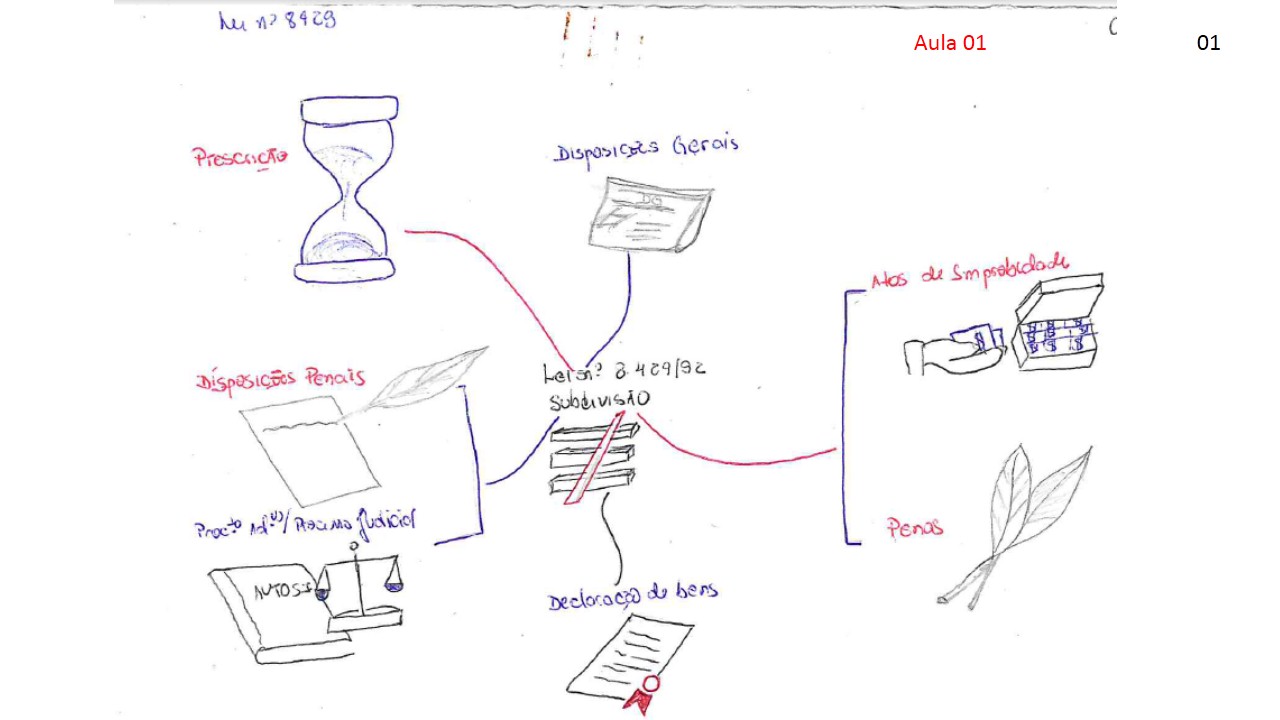 Lei nº 8429
Aula 01
01
Prescrição
Disposições Gerais
DG
Atos de Improbidade
Disposições Penais
Lei nº 8.429/92
Subdivisão
Procto Admvo/Processo Judicial
AUTOS
Penas
Declaração de bens